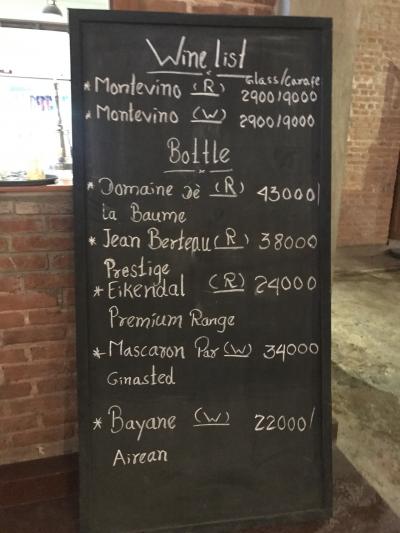 Wine list
Glass/Carafe
* Montevino (R) 2900/9000
* Montevino (W) 2900/9000
Bottle
* Domaine Dè (R) 43000/
la Baume
* Jean Berteau (R) 38000
Prestige
* Eikendal (R) 24000
Premium Range
* Mascaron Par (W) 34000
Ginasted
* Bayane (W) 22000/
Airean